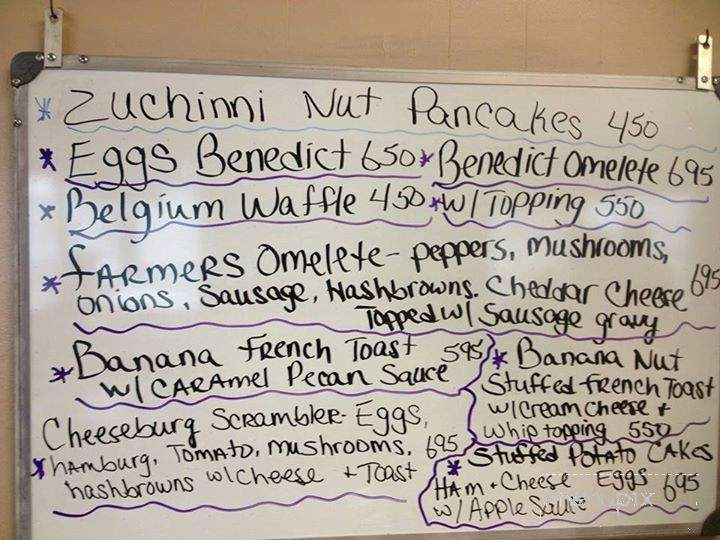 * Zuchinni Nut Pancakes 450
* Eggs Benedict 650 * Benedict Omelete 695
* Belgium Waffle 450 * w/Topping 550
* FARMERS Omelete - peppers, mushrooms,
onions, Sausage, Hashbrowns. Cheddar Cheese 695
Topped w/ Sausage gravy
* Banana French Toast 595
w/ CARAmel Pecan Sauce
* Banana Nut
Stuffed French Toast
w/Cream Cheese +
Whip topping 550
Cheeseburg Scrambler- Eggs,
* hamburg, Tomato, mushrooms, 695
hashbrowns w/Cheese + Toast
* Stuffed Potato CAKes
HAm + Cheese Eggs 695
w/ Apple Sauce